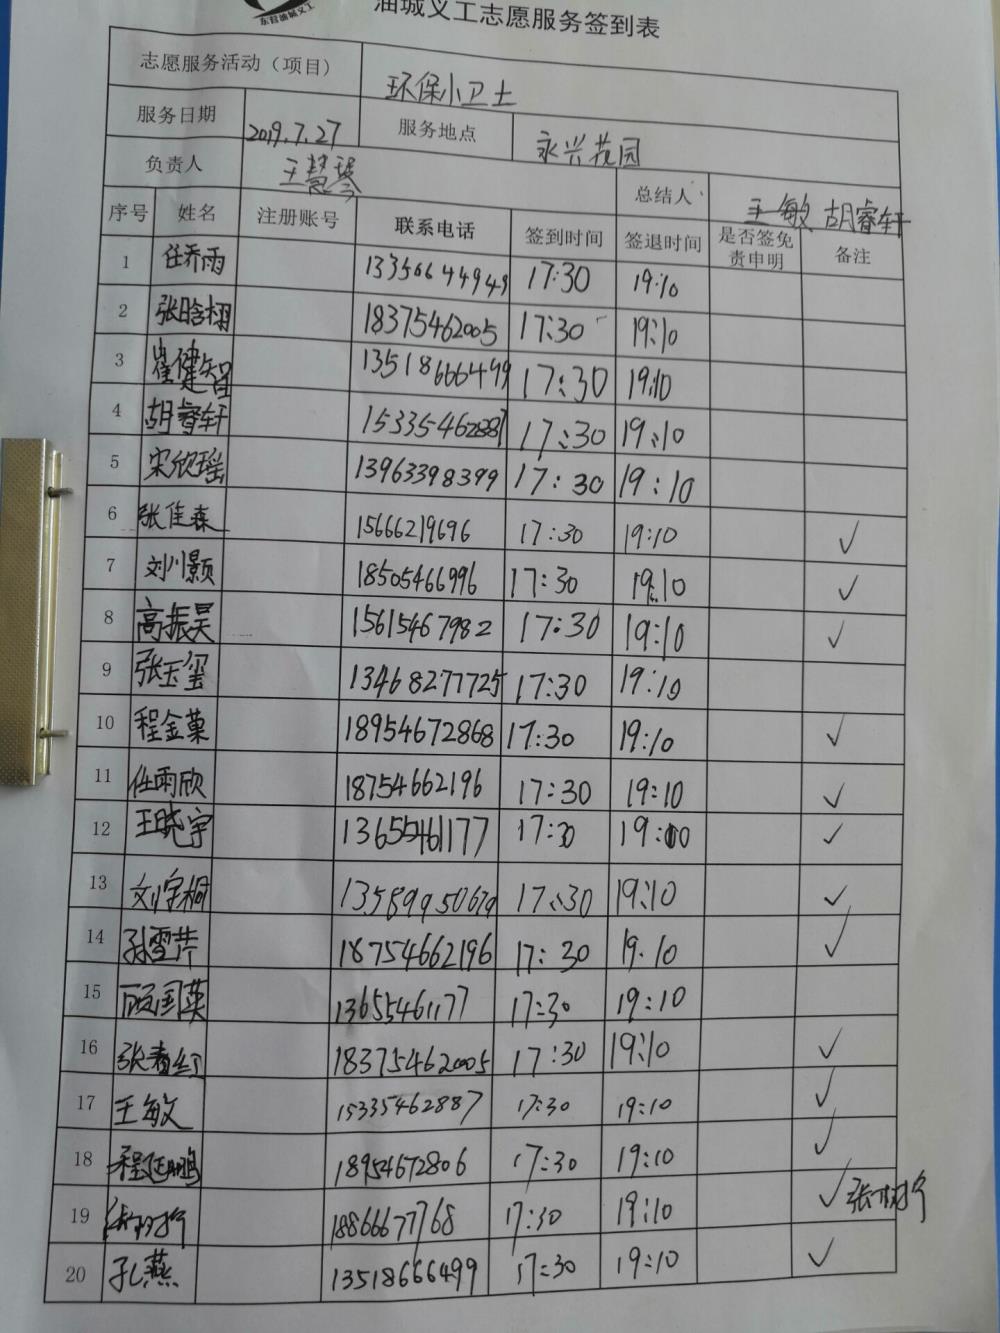 东营油城义工
油城义工志愿服务签到表
志愿服务活动（项目） 环保小卫士
服务日期 2019.7.27 服务地点 永兴花园
负责人 王慧琴 总结人 王敏 胡睿轩
序号 姓名 注册账号 联系电话 签到时间 签退时间 是否签免责申明 备注
1 任乔雨 13356644949 17:30 19:10
2 张晗栩 18375462005 17:30 19:10
3 崔健智 13518666499 17:30 19:10
4 胡睿轩 15335462887 17:30 19:10
5 宋欣瑶 13963398399 17:30 19:10
6 张佳森 15666219696 17:30 19:10 ✓
7 刘川颢 18505466996 17:30 19:10 ✓
8 高振昊 15615467982 17:30 19:10 ✓
9 张玉玺 13468277725 17:30 19:10
10 程金菓 18954672868 17:30 19:10 ✓
11 任雨欣 18754662196 17:30 19:10 ✓
12 王晓宇 13655461177 17:30 19:10 ✓
13 刘宇桐 13589950679 17:30 19:10 ✓
14 孙雪芹 18754662196 17:30 19:10 ✓
15 顾国英 13655461177 17:30 19:10
16 张春红 18375462005 17:30 19:10 ✓
17 王敏 15335462887 17:30 19:10 ✓
18 程延鹏 18954672806 17:30 19:10 ✓
19 18866677768 17:30 19:10 ✓
20 孔燕 13518666499 17:30 19:10 ✓